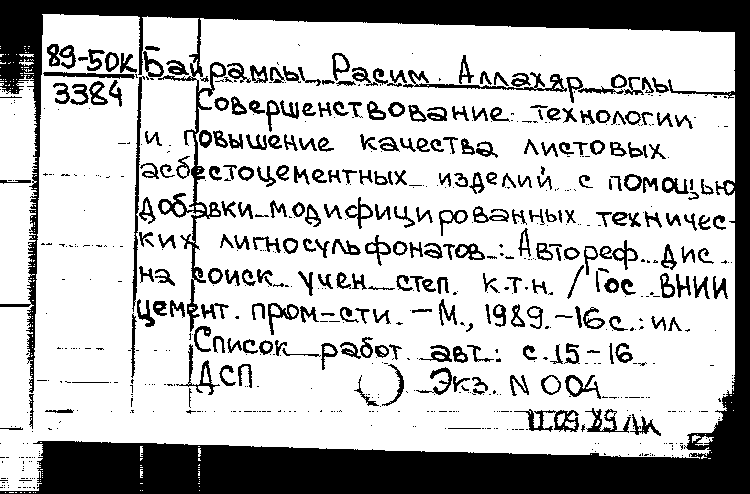 89-50К Байрамлы, Расим Аллахяр оглы
3384 Совершенствование технологии
и повышение качества листовых
асбестоцементных изделий с помощью
добавки модифицированных техничес-
ких лигносульфонатов : Автореф. дис
на соиск учен степ. к.т.н. / Гос ВНИИ
цемент. пром-сти. -М., 1989.-16с.: ил.
Список работ авт.: с.15-16
ДСП Экз. N 004
11.09.89 ЛК